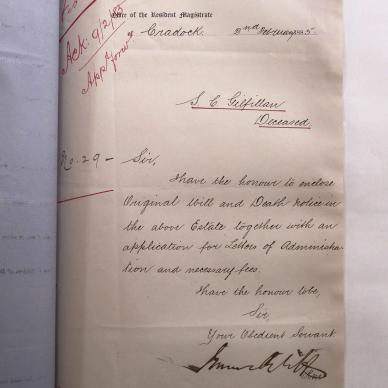 Office of the Resident Magistrate
Cradock. 2nd February 1885.
Ack: 9/2/85
S. C. Gilfillan
Deceased.
No. 29 - Sir,
I have the honour to enclose
Original Will and Death notice in
the above Estate together with an
application for Letters of Administra-
tion and necessary fees.
I have the honour to be,
Sir,
Your Obedient Servant